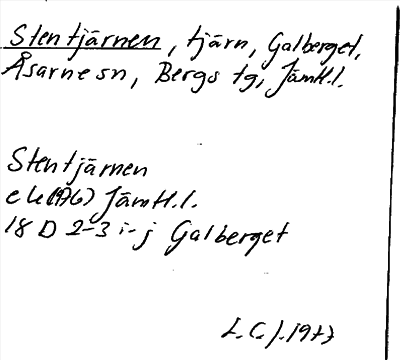 Stentjärnen, tjärn, Galberget,
Åsarne sn, Bergs tg, Jämtl.l.
Stentjärnen
ek (1976) Jämtl.l.
18 D 2-3 i-j Galberget
L.C.J. 1977